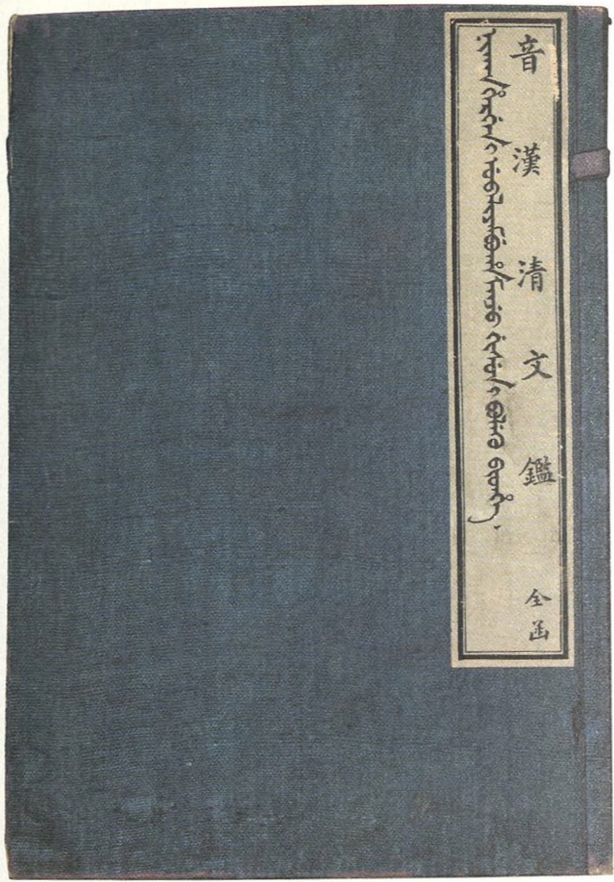 音漢清文鑑 全函
ᠨᡳᡴᠠᠨ ᡥᡝᡵᡤᡝᠨ ᡳ ᡠᠪᠠᠯᡳᠶᠠᠮᠪᡠᡥᠠ ᠮᠠᠨᠵᡠ ᡤᡳᠰᡠᠨ ᡳ ᠪᡠᠯᡝᡴᡠ ᠪᡳᡨᡥᡝ᠈